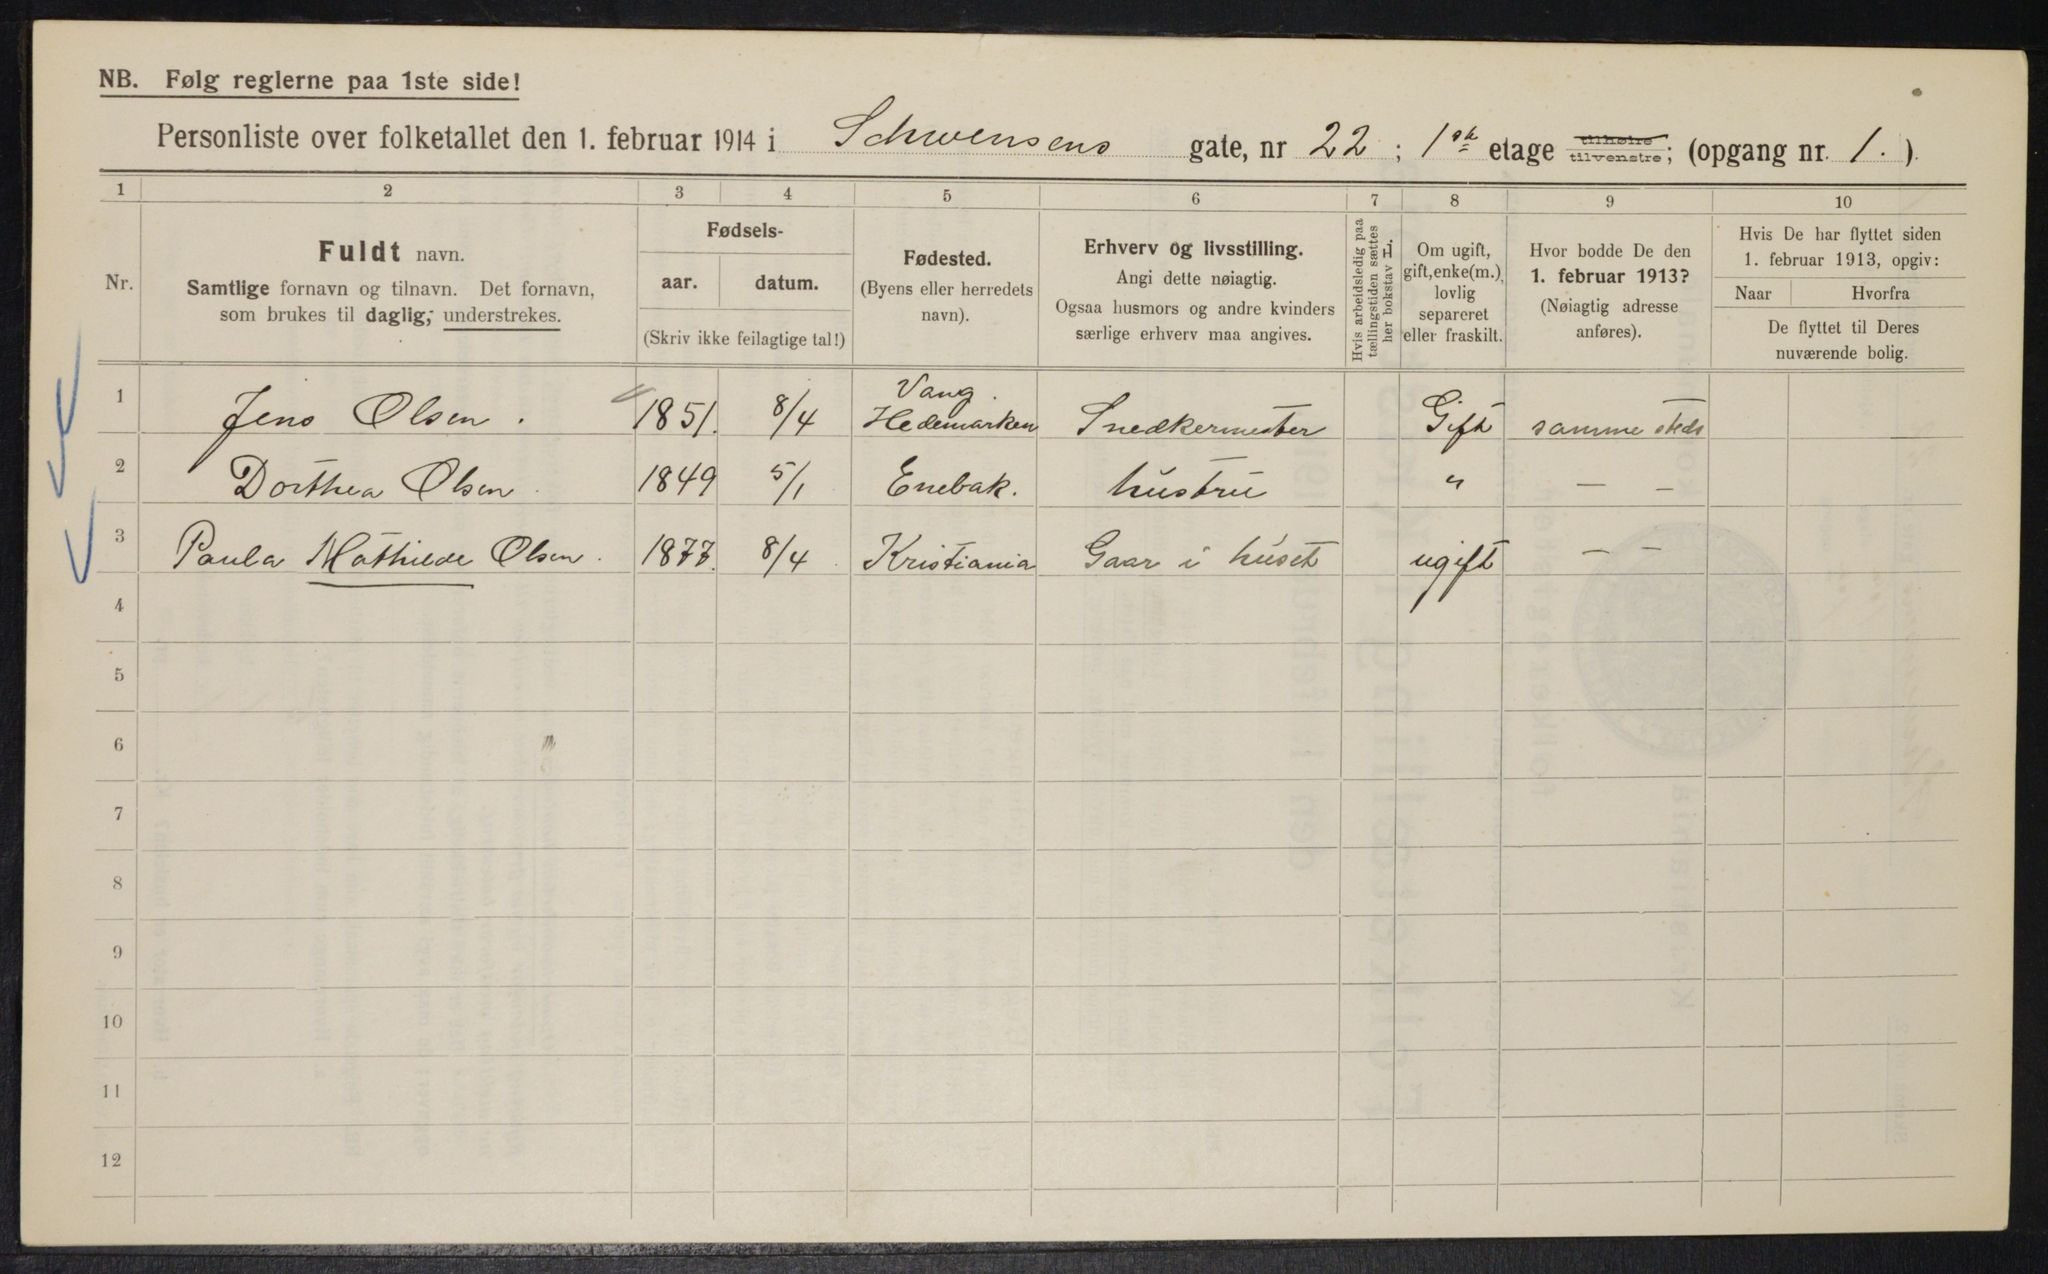 NB. Følg reglerne paa 1ste side!
Personliste over folketallet den 1. februar 1914 i Schwensens gate, nr 22 ; 1ste etage tilhøire tilvenstre; (opgang nr. 1. ).
1 2 3 4 5 6 7 8 9 10
Nr.
Fuldt navn.
Samtlige fornavn og tilnavn. Det fornavn,
som brukes til daglig, understrekes.
Fødsels-
aar. datum.
(Skriv ikke feilagtige tal!)
Fødested.
(Byens eller herredets
navn).
Erhverv og livsstilling.
Angi dette nøiagtig.
Ogsaa husmors og andre kvinders
særlige erhverv maa angives.
Hvis arbeidsledig paa
tællingstiden sættes
her bokstav L.
Om ugift,
gift, enke(m.),
lovlig
separeret
eller fraskilt.
Hvor bodde De den
1. februar 1913?
(Nøiagtig adresse
anføres).
Hvis De har flyttet siden
1. februar 1913, opgiv:
Naar Hvorfra
De flyttet til Deres
nuværende bolig.
1 Jens Olsen. 1851. 8/4 Vang. Hedemarken Snedkermester Gift samme steds
2 Dorthea Olsen. 1849 5/1 Enebak. hustru " — —
3 Paula Mathilde Olsen. 1877. 8/4 Kristiania Gaar i huset ugift — —
4
5
6
7
8
9
10
11
12